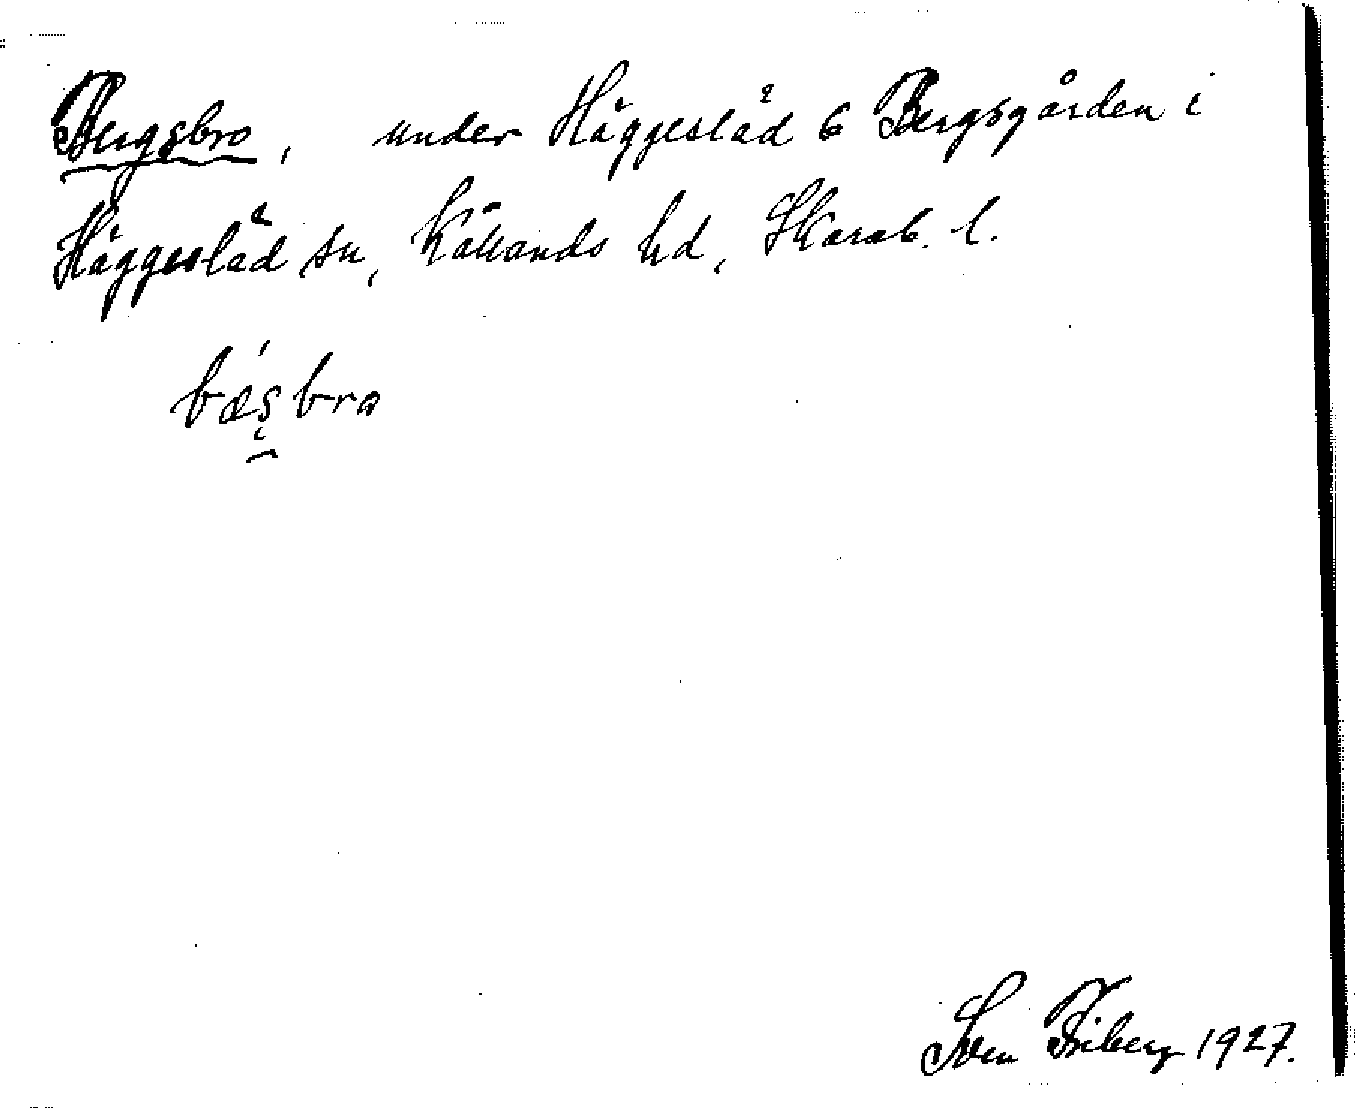 Bergsbro, under Häggesläd 6 Bergsgården i
Häggesläd sn, Kållands hd, Skarab. l.
bæ̀s̨bro
Sven Friberg 1927.